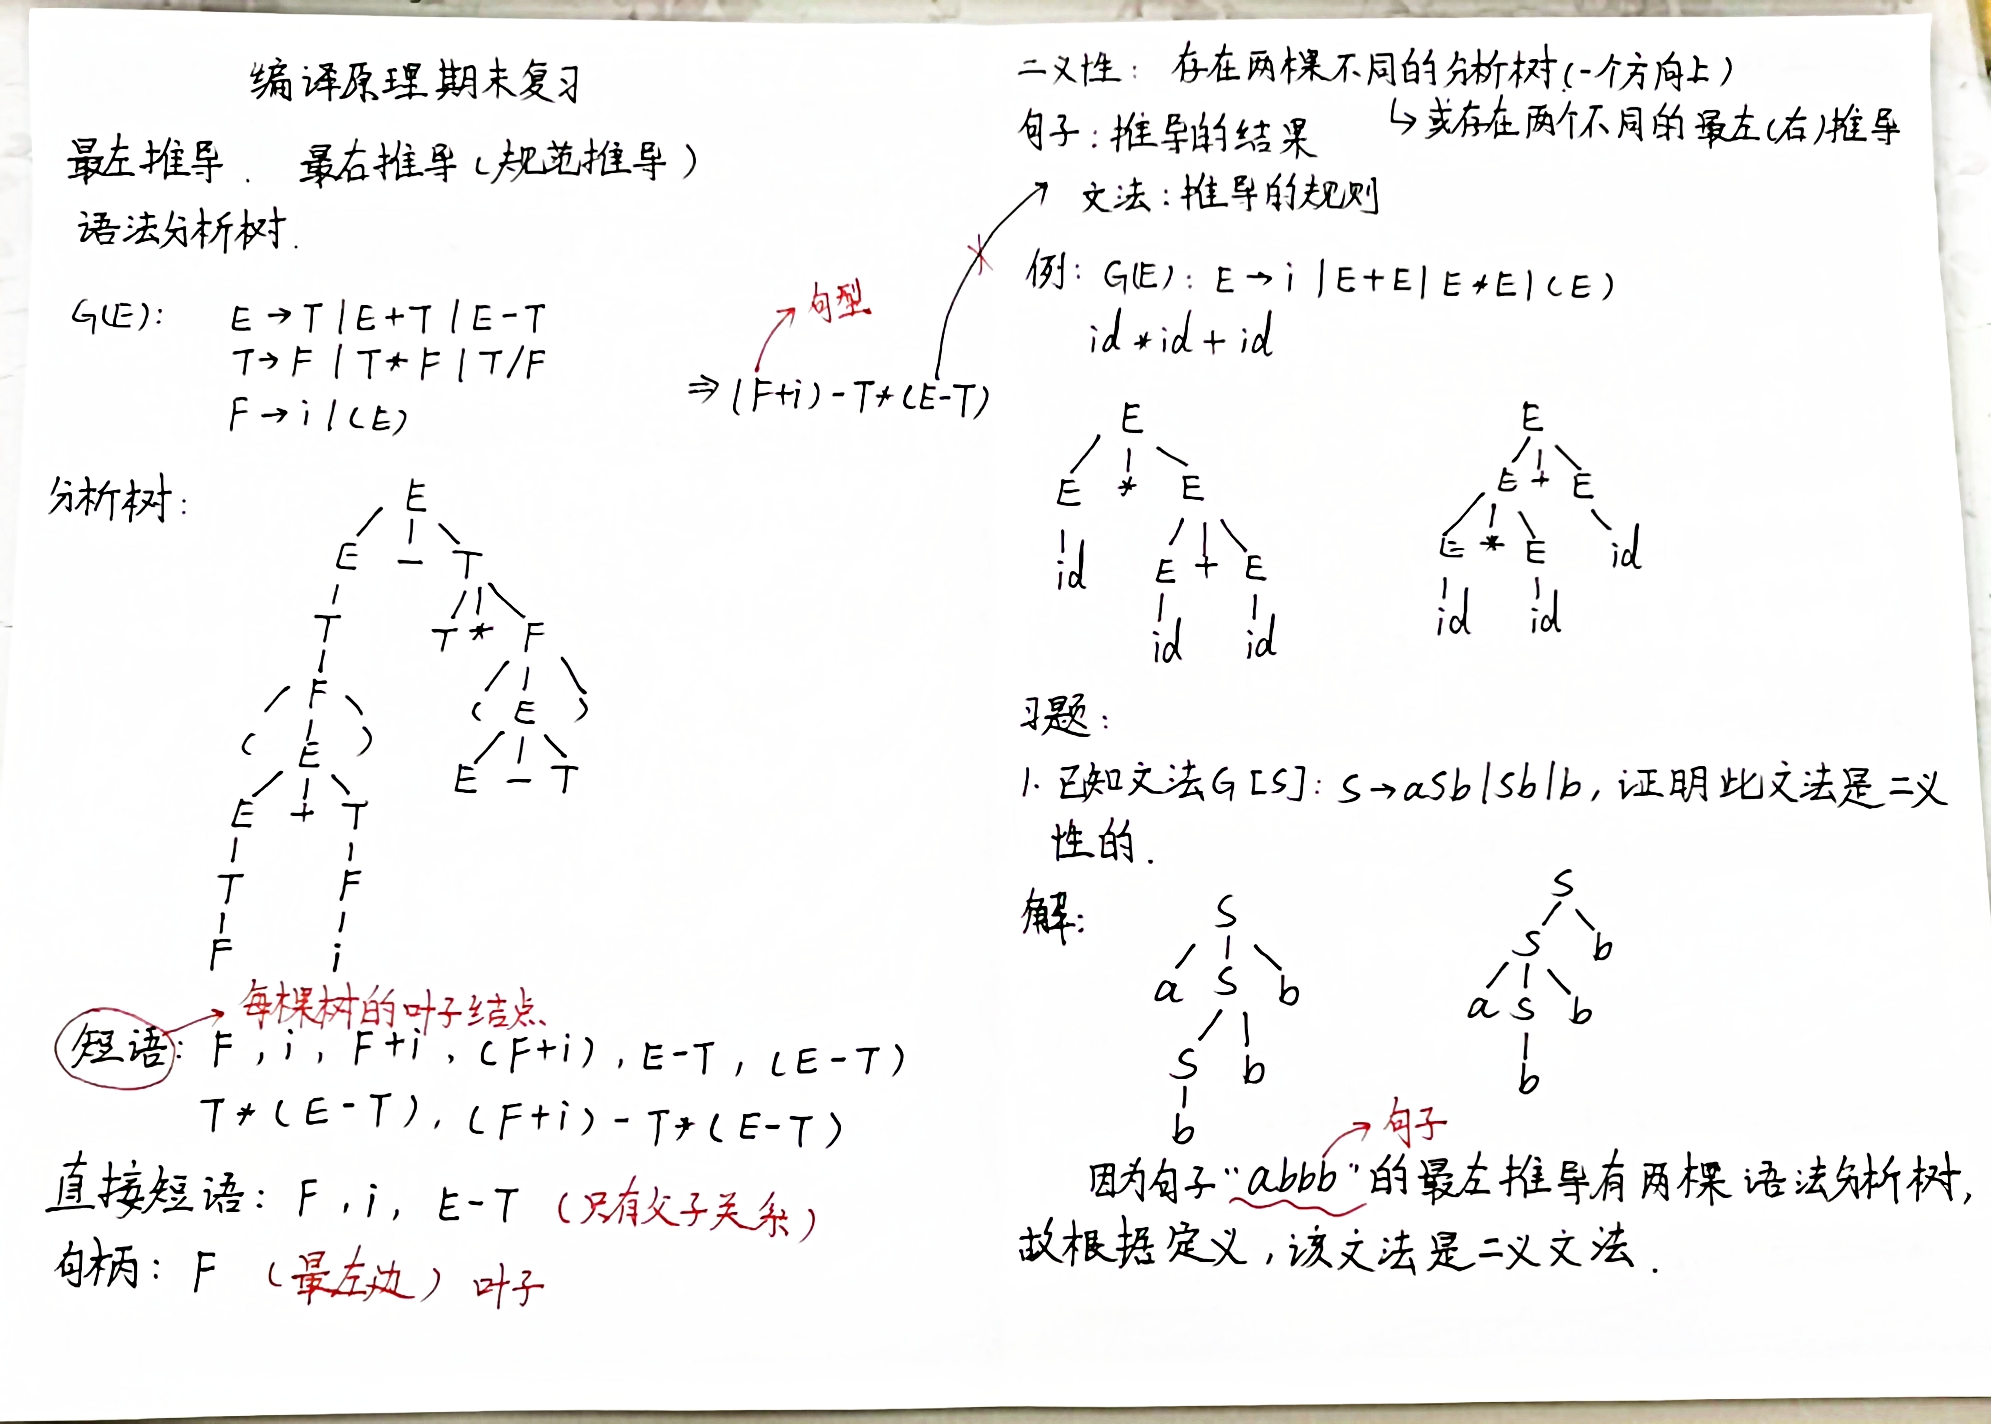 编译原理期末复习
最左推导. 最右推导(规范推导)
语法分析树.
G(E): E→T|E+T|E-T
T→F|T*F|T/F
F→i|(E)
句型
⇒(F+i)-T*(E-T)
分析树:
E
E - T
T T * F
F ( E )
( E ) E - T
E + T
T F
F i
每棵树的叶子结点
短语: F, i, F+i, (F+i), E-T, (E-T)
T*(E-T), (F+i)-T*(E-T)
直接短语: F, i, E-T (只有父子关系)
句柄: F (最左边)叶子
二义性: 存在两棵不同的分析树(一个方向上)
↳或存在两个不同的最左(右)推导
句子:推导的结果
文法:推导的规则
例: G(E): E→i|E+E|E*E|(E)
id*id+id
E
E * E
id E + E
id id
E
E + E
E * E id
id id
习题:
1. 已知文法G[S]: S→aSb|Sb|b, 证明此文法是二义
性的.
解:
S
a S b
S b
b
S
S b
a S b
b
句子
因为句子"abbb"的最左推导有两棵语法分析树,
故根据定义,该文法是二义文法.